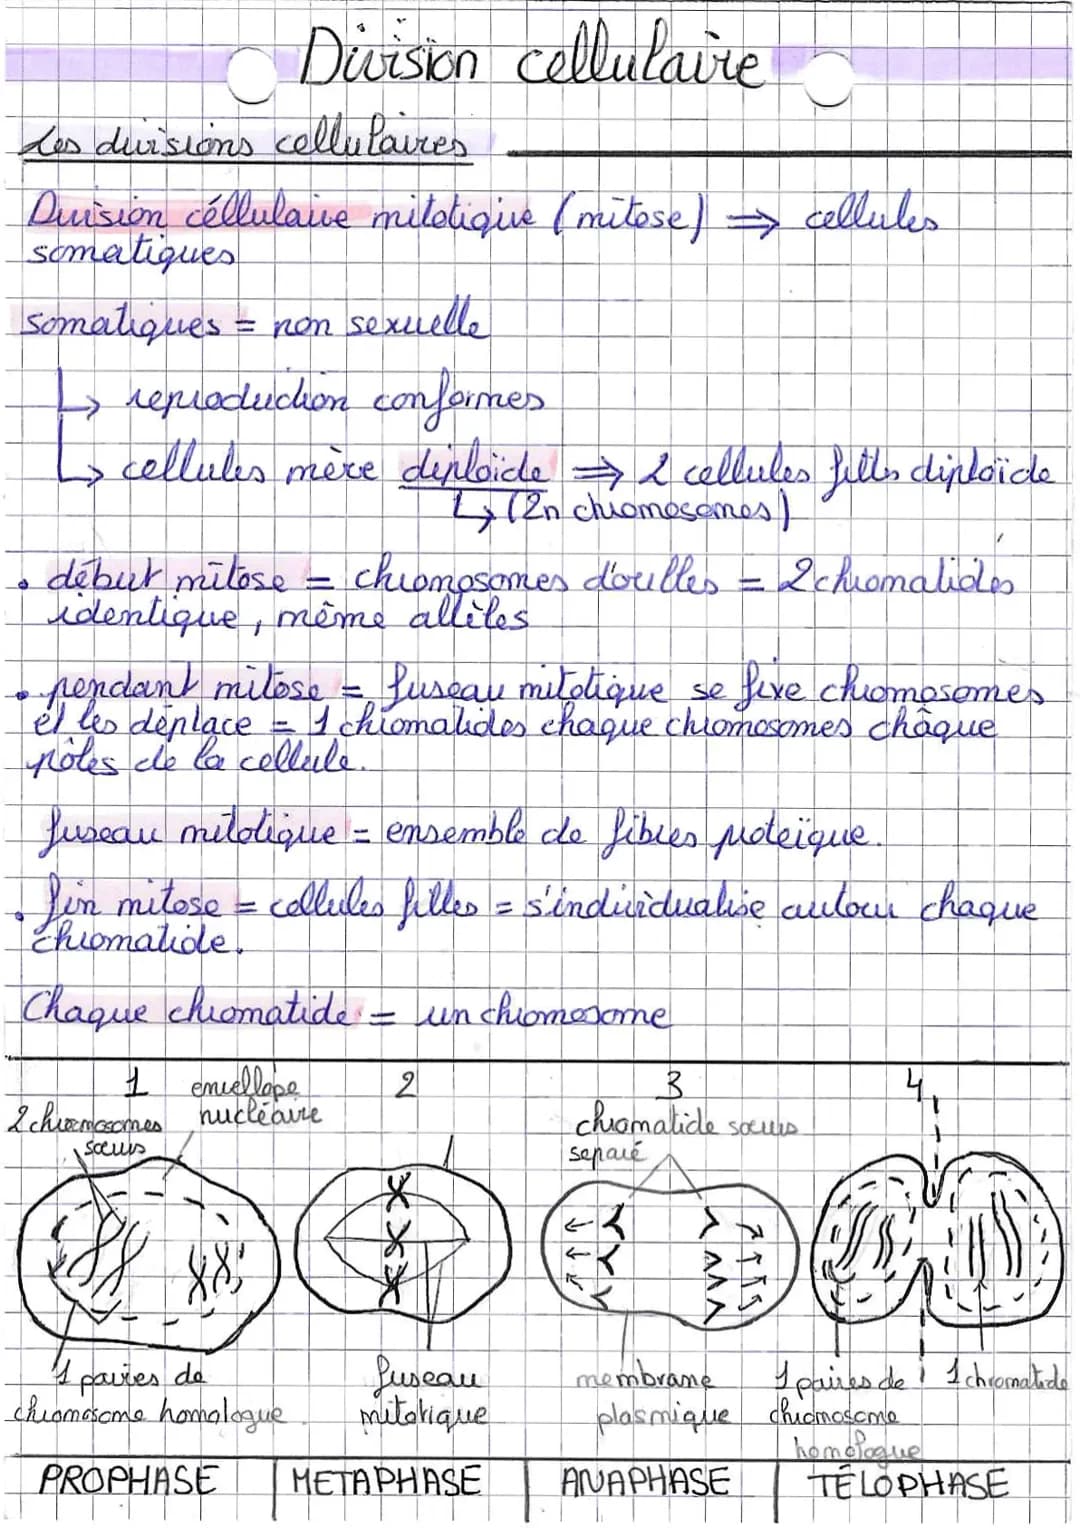 Division cellulaire
Les divisions cellulaires
Division céllulaire mitotique (mitose) ⇒ cellules
somatiques
somatiques = non sexuelle
↳ reproduction conformes
↳ cellules mère diploïde ⇒ 2 cellules filles diploïde
↳ (2n chromosomes)
• début mitose = chromosomes doubles = 2 chromatides
identique, même allèles
• pendant mitose = fuseau mitotique se fixe chromosomes
et les déplace = 1 chromatides chaque chromosomes châque
pôles de la cellule.
fuseau mitotique = ensemble de fibres proteïque.
• fin mitose = cellules filles = s'individualise autour chaque
chromatide.
Chaque chromatide = un chromosome
1 2 3 4
envellope
nucléaire
2 chromosomes
sœurs
chromatide sœurs
separé
1 paires de
chromosome homologue
fuseau
mitotique
membrane
plasmique
1 paires de
chromosome
homologue
1 chromatide
PROPHASE METAPHASE ANAPHASE TÉLOPHASE